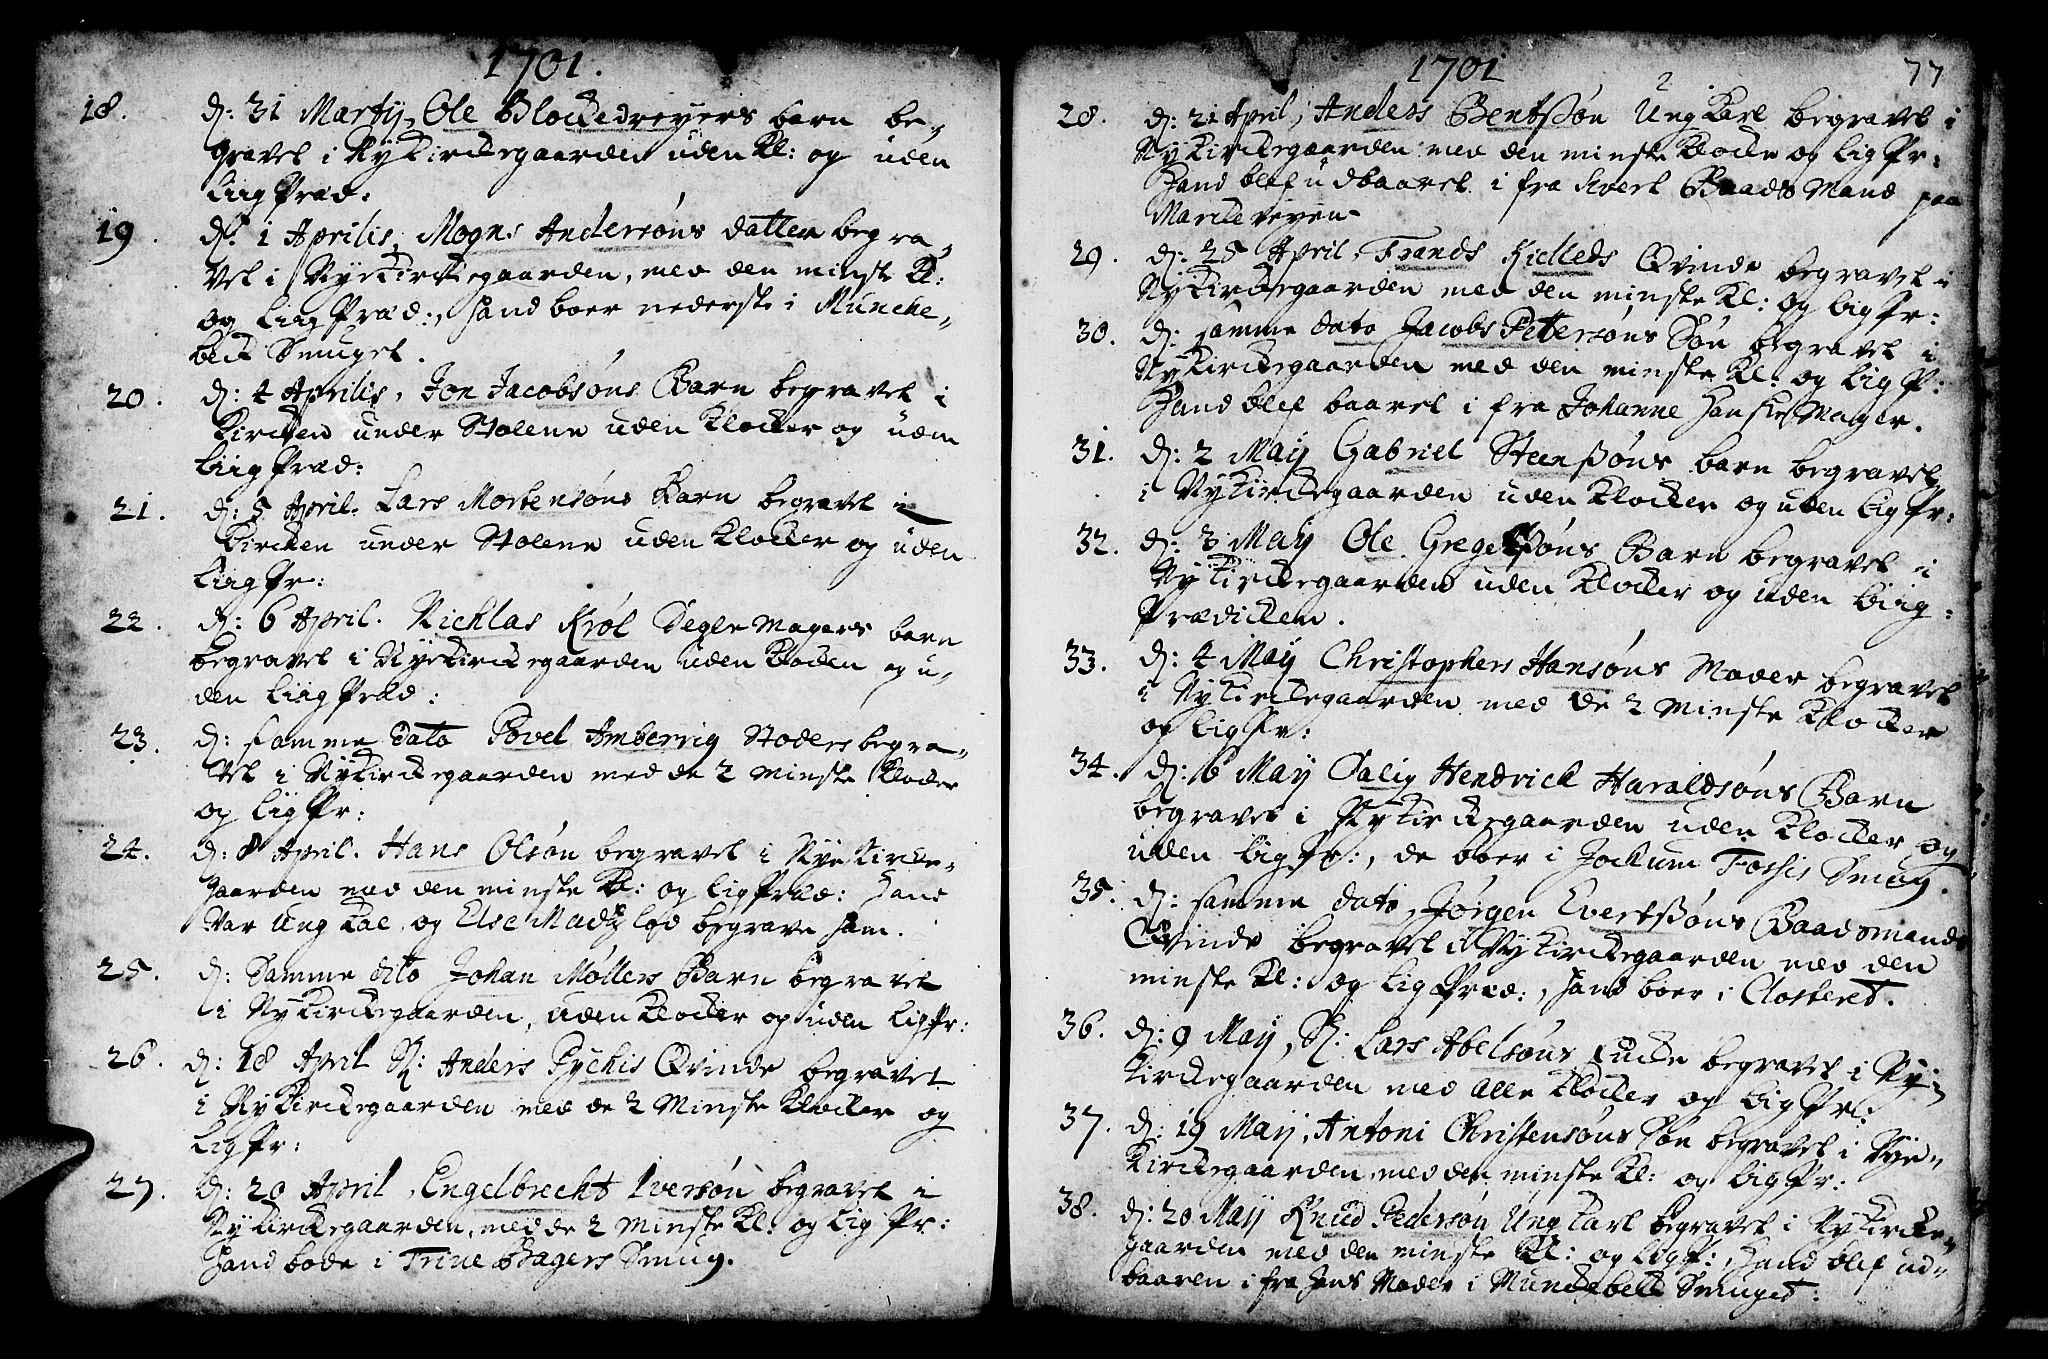 1701.
18. d: 31 Martij, Ole Blockedreyers barn be-
gravet i Nykirckegaarden uden Kl: og uden
Liigpræd:
19. d: 1 Aprilis, Mogns Andersøns datter begra-
vet i Nyekirckegaarden, med den minste Kl:
og Liigpræd:, hand boer nederste i Muncke-
beck Smuget.
20. d: 4 Aprilis, Jon Jacobsøns Barn begravet i
Kircken under Stolene uden Klocker og uden
Liigpræd:
21. d: 5 April. Lars Mortensøns Barn begravet i
Kircken under Stolene uden Klocker og uden
Liigpr:
22. d: 6 April. Nichlas Krøl Degle Magers barn
begravet i Nyekirckegaarden uden Klocker og u-
den Liigpræd:
23. d: samme dato Povel Amberrig Stoders begra-
vet i Nykirckegaarden med de 2 minste Klocker
og Ligpr:
24. d: 8 April. Hans Olsøn begravet i Nyekircke-
gaarden med den minste Kl: og Ligpræd: hand
var ung Kael, og Else Madz lod begrave ham.
25. d: Samme dito Johan Møllers Barn begravet
i Nykirckegaarden, uden Klocker og uden Ligpr:
26. d: 18 April Sl: Anders Pychis Qvinde begravet
i Nykirckegaarden med de 2 Minste Klocker og
Ligpr:
27. d: 20 April, Engelbrecht Iversøn begravet i
Nykirckegaarden, med de 2 Minste Kl: og Lig Pr:
Hand bode i Trine Bagers Smug.
1701
77
28. d: 21 April, Anders Bentsøn Ung Karl begravet i
Nykirckegaarden med den minste Klocke og Lig Pr:
Hand blef udbaaret i fra Sivert Baads Mand paa
Marckeveyen
29. d: 25 April, Frands Kielleds Qvinde begravet i
Nykirckegaarden med den minste Kl: og Ligpr:
30. d: samme dato Jacobs Petersøns Søn begravet i
Nykirckegaarden med den minste Kl: og Lig P:
Hand blef baaret i fra Johanne Hanske Mager.
31. d: 2 Maij Gabriel Steensøns barn begravet
i Nykirckegaarden uden Klocker og uden Ligpr:
32. d: 3 Maij Ole Gregersøns Barn begravet i
Nykirckegaarden uden Klocker og uden Liig:
Prædicken.
33. d: 4 Maij Christophers Hansøns Moder begravet
i Nykirckegaarden med de 2 Minste Klocker
og Ligpr:
34. d: 6 Maij Salig Hendrick Haraldsøns Barn
begravet i Nykirckegaarden uden Klocker og
uden Ligpr:, de boer i Jochum Foshis Smug.
35. d: samme dato, Jørgen Evertsøns Baadsmands
Qvinde begravet i Nykirckegaarden med den
minste Kl: og Lig Præd:, Hand boer i Closteret.
36. d: 9 Maij, Sl: Lars Abelsøns Encke begravet i Ny-
kirckegaarden med alle Klocker og Lig Pr:
37. d: 19 Maij, Antoni Christensøns Søn begravet i Nye-
kirckegaarden, med den minste Kl: og Lig Pr:
38. d: 20 Maij Knud Pedersøn Ung Karl begravet i Nykircke-
gaarden med den minste Kl: og Ligp:, Hand blef ud-
baaren i fra hans Moder i Munckebeck Smuget.